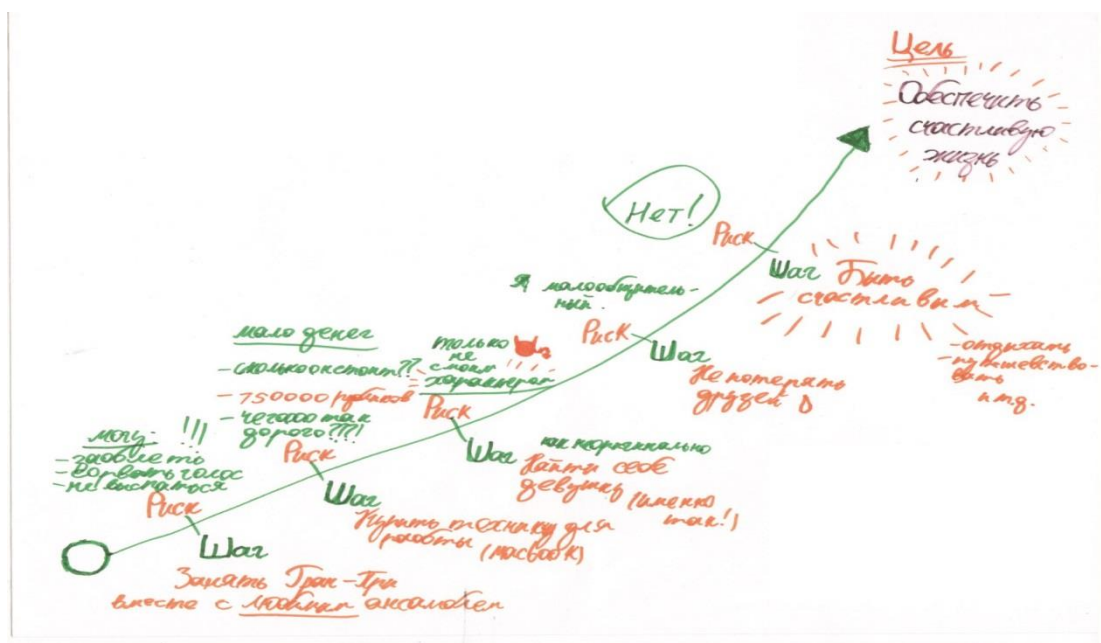 Цель
Обеспечить
счастливую
жизнь
Нет!
Риск
Шаг
Быть
счастливым
- отдыхать
- путешество-
вать
итд.
Я малообщитель-
ный.
Риск
Шаг
Не потерять
друзей
только
не
с моим
характером
Риск
Шаг
как неоригинально
Найти себе
девушку (именно
так!)
мало денег
- сколькооонстоит??
- 750000 рубликов
- чегоооо так
дорого???!
Риск
Шаг
Купить технику для
работы (macbook)
могу: !!!
- заболеть
- сорвать голос
- не выспаться
Риск
Шаг
Занять Гран-При
вместе с любимым ансамблем